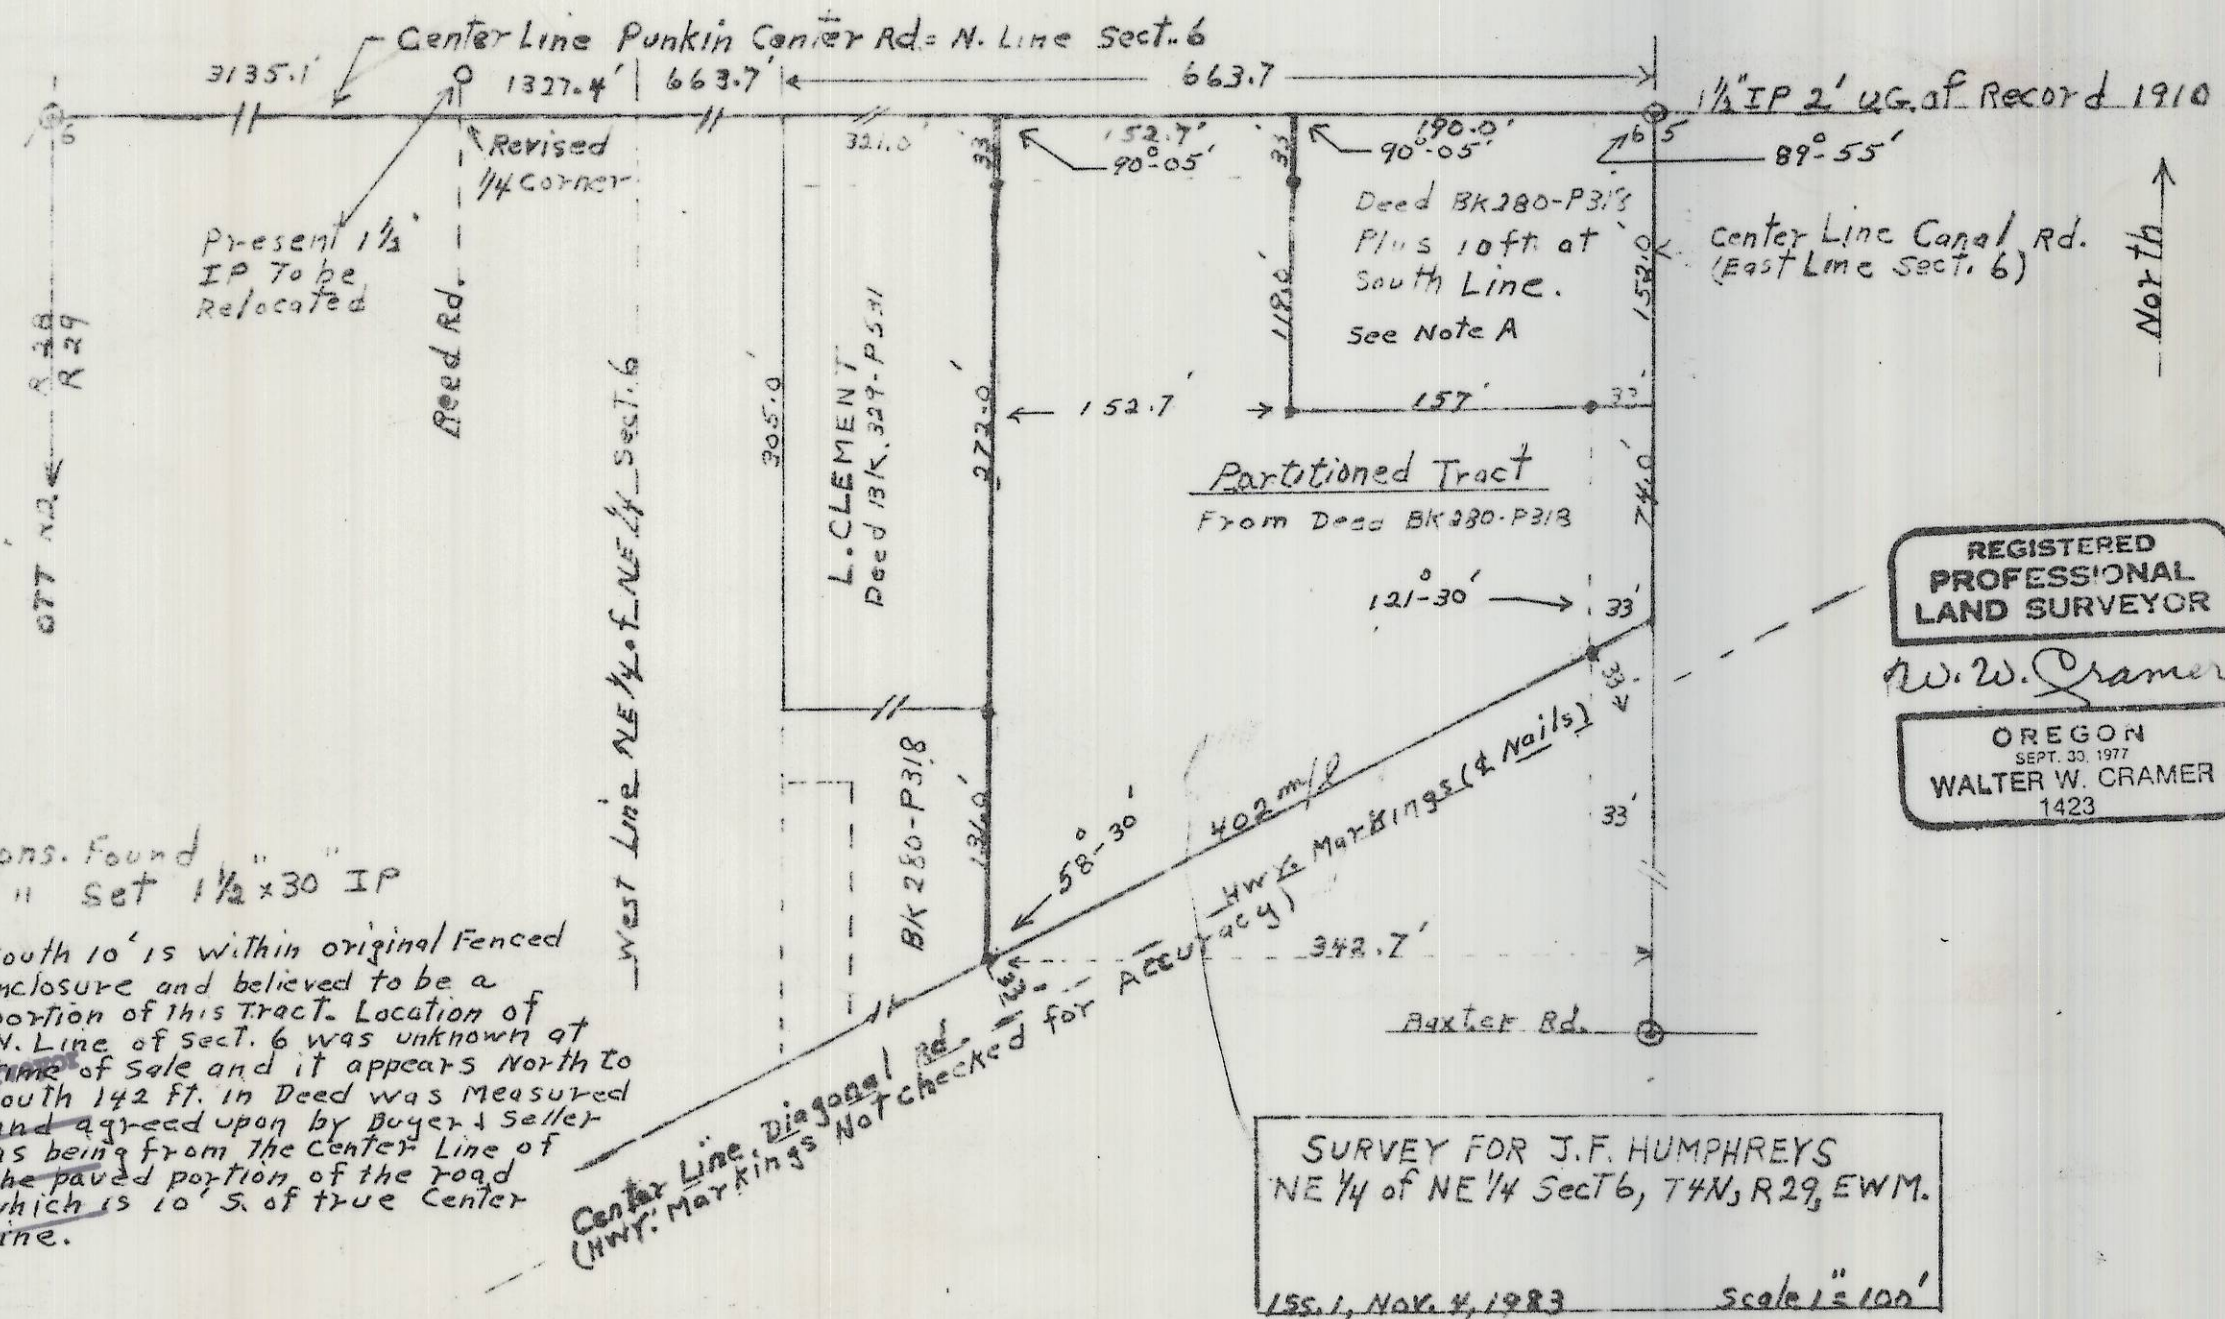 Center Line Punkin Center Rd = N. Line Sect. 6
3135.1'
1327.4'
663.7'
663.7
1½" IP 2' UG. of Record 1910
6
Revised
1/4 Corner
321.0'
33'
152.7'
90°-05'
33'
190.0'
90°-05'
6 5
89°-55'
Present 1½"
IP To be
Relocated
Deed BK280-P318
Plus 10ft at
South Line.
See Note A
Center Line Canal Rd.
(East Line Sect. 6)
North
R 28
R 29
OTT Rd.
Reed Rd.
West Line NE¼ of NE¼ Sect. 6
305.0'
L. CLEMENT
Deed BK. 329-P531
272.0'
118.0'
152.0'
152.7'
157'
33'
Partitioned Tract
From Deed BK280-P318
74.0'
121°-30'
33'
REGISTERED
PROFESSIONAL
LAND SURVEYOR
W. W. Cramer
OREGON
SEPT. 30, 1977
WALTER W. CRAMER
1423
33'
33'
BK 280-P318
131.0'
58°-30'
402 m/l
Hwy. Markings (& Nails)
342.7'
33'
Baxter Rd.
Center Line Diagonal Rd.
(Hwy. Markings Not checked for Accuracy)
ons. Found
" Set 1½" x 30" IP
outh 10' is within original Fenced
nclosure and believed to be a
portion of this Tract. Location of
N. Line of Sect. 6 was unknown at
ime of Sale and it appears North to
outh 142 ft. in Deed was Measured
and agreed upon by Buyer & Seller
as being from the Center Line of
he paved portion of the road
which is 10' S. of true Center
ine.
SURVEY FOR J.F. HUMPHREYS
NE ¼ of NE ¼ Sect 6, T4N, R29, EWM.
Iss. 1, Nov. 4, 1983 Scale 1" = 100'